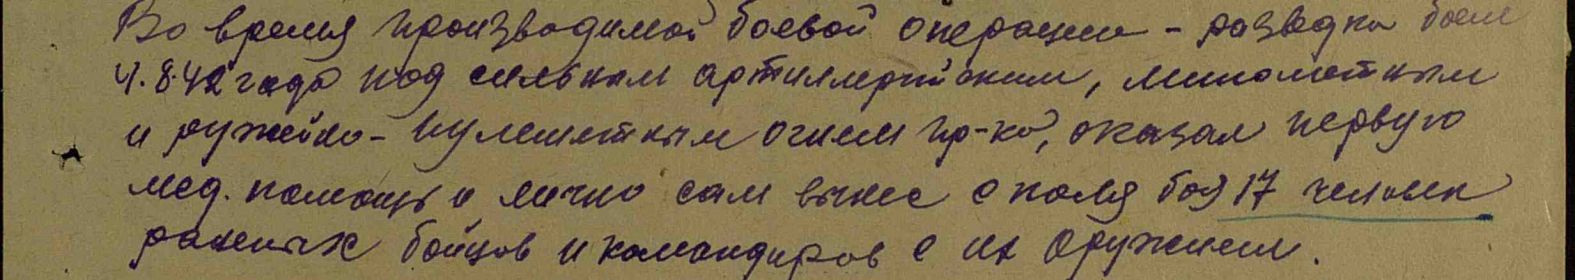 Во время производимой боевой операции - разведка боем
4.8.42 года под сильным артиллерийским, минометным
и ружейно-пулеметным огнем пр-ка, оказал первую
мед. помощь и лично сам вынес с поля боя 17 человек
раненых бойцов и командиров с их оружием.